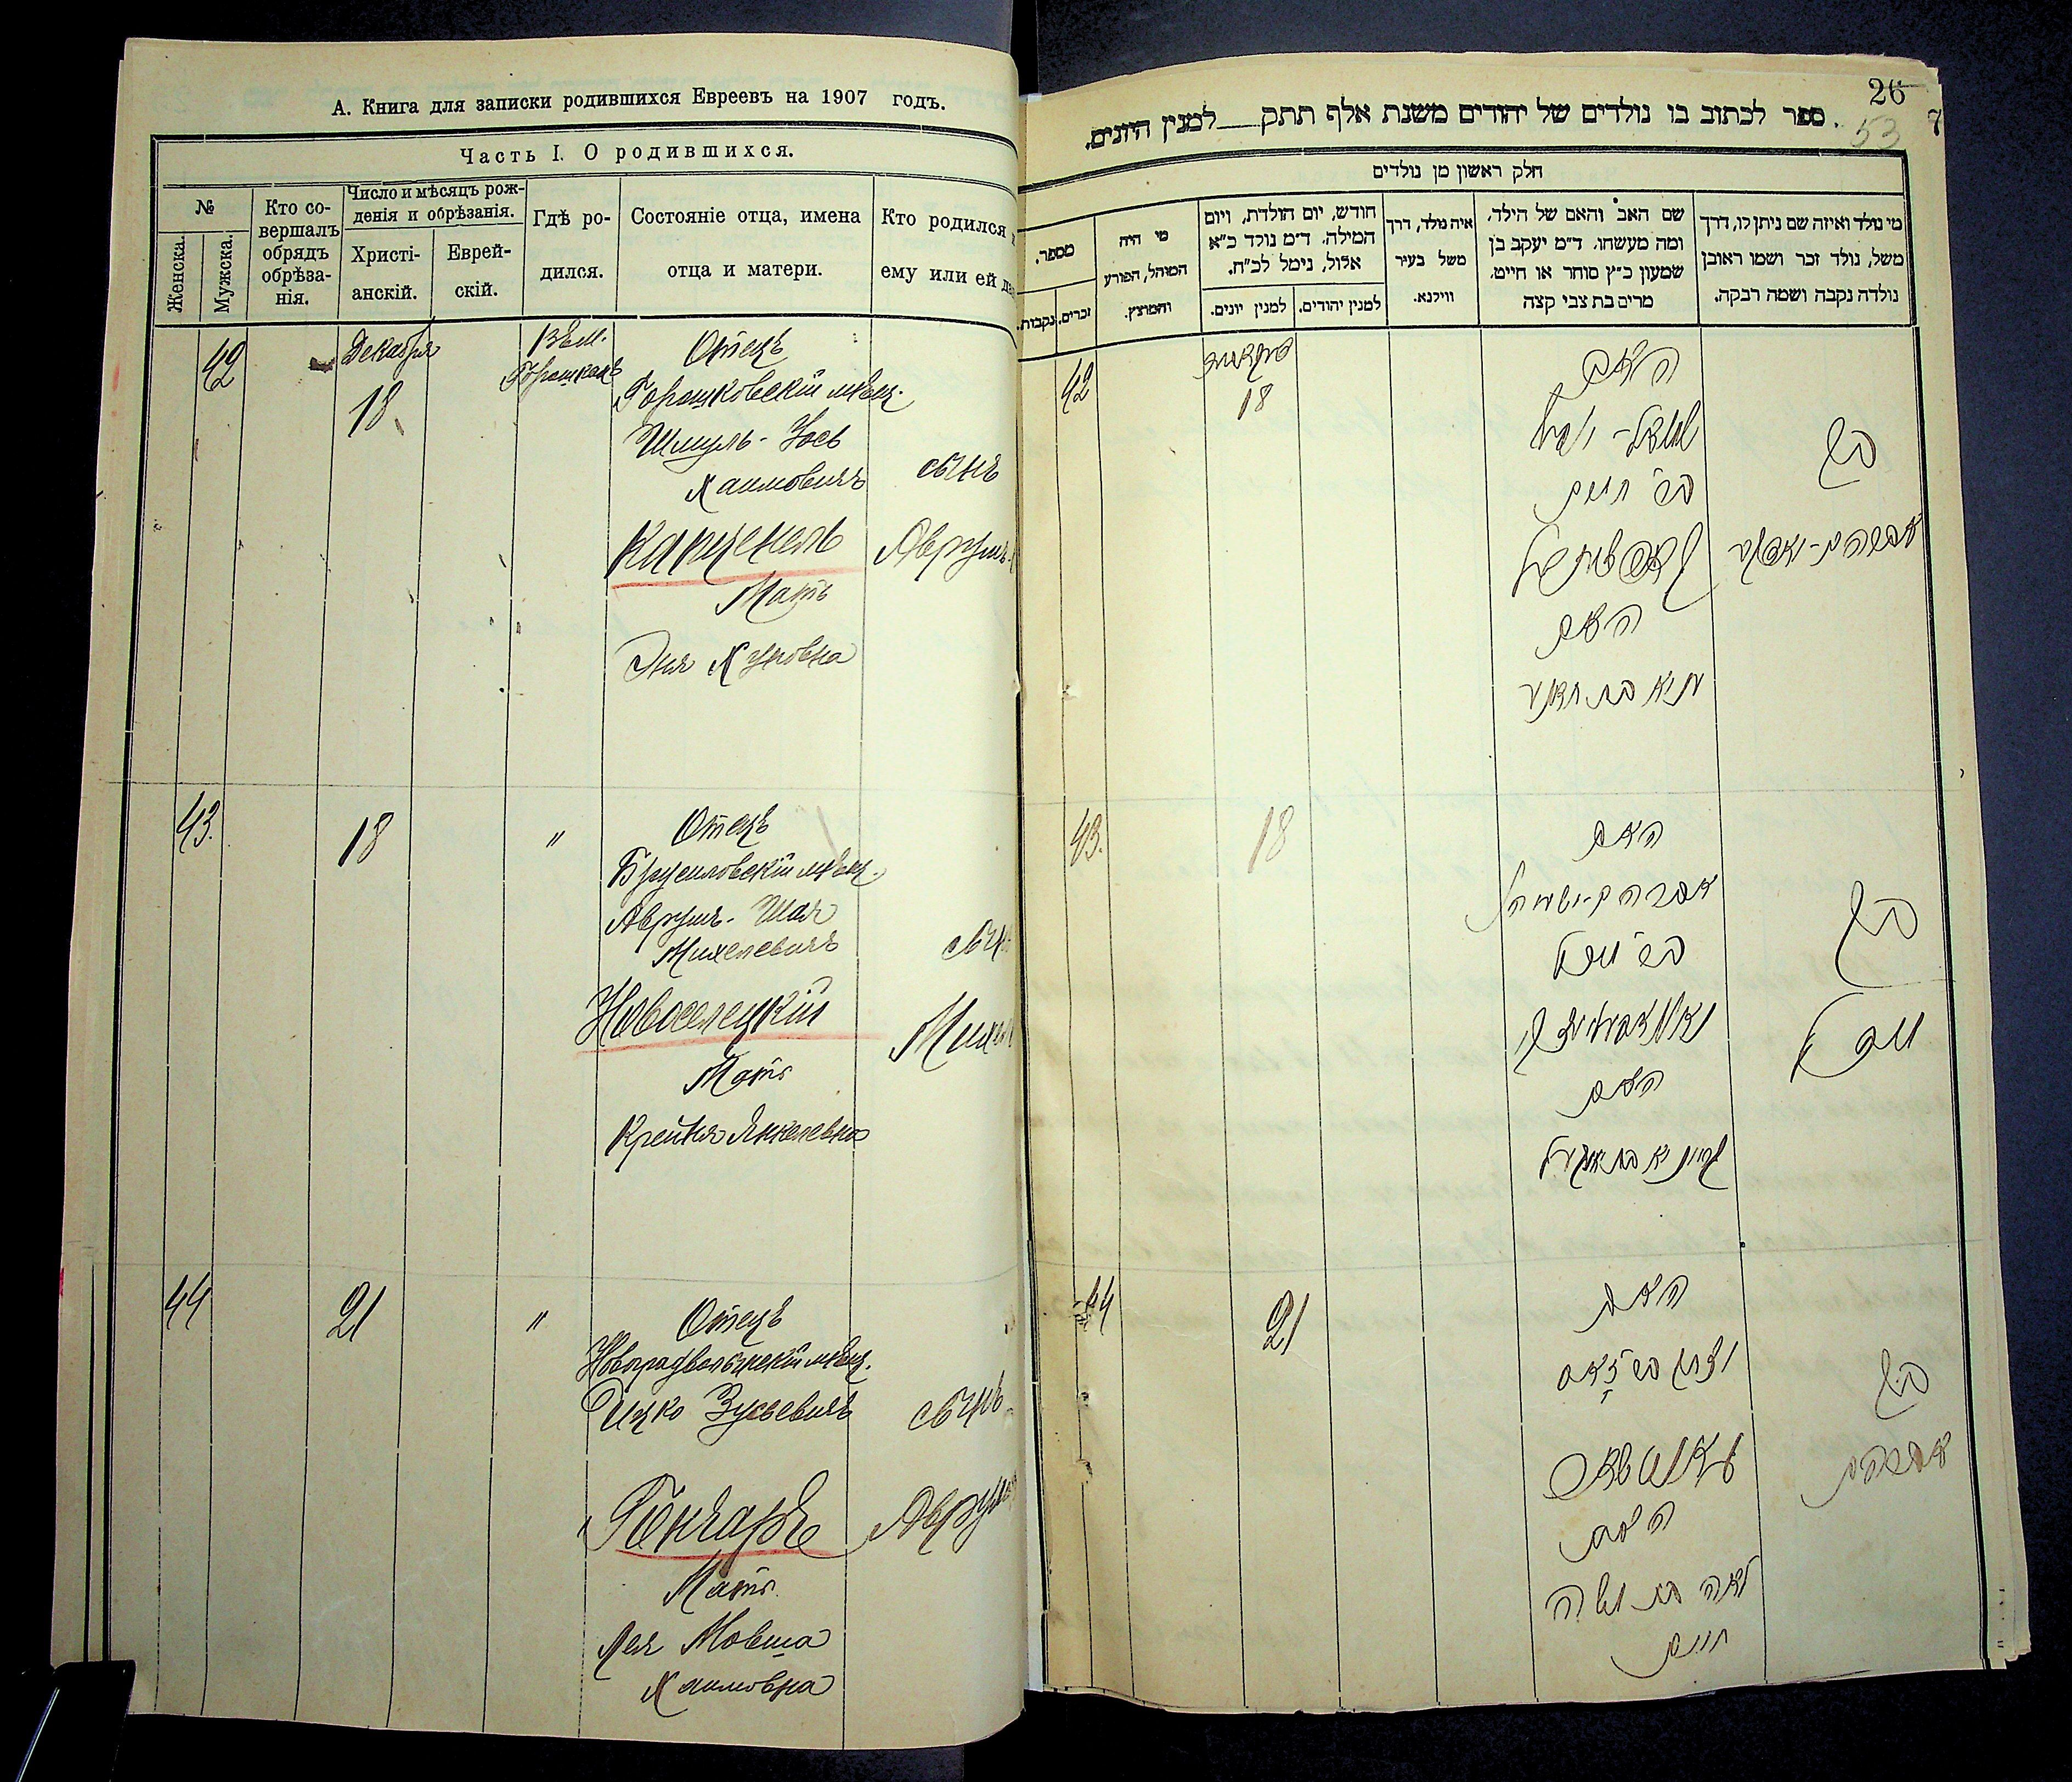 А. Книга для записки родившихся Евреевъ на 1907 годъ.
Часть I. О родившихся.
№
Женска.
Мужска.
Кто со-
вершалъ
обрядъ
обрѣза-
нія.
Число и мѣсяцъ рож-
денія и обрѣзанія.
Христі-
анскій.
Еврей-
скій.
Гдѣ ро-
дился.
Состояніе отца, имена
отца и матери.
Кто родился
ему или ей
42
Декабря
18
Въ м.
Горошкахъ
Отецъ
Горошковскій мѣщ.
Шмуль-Іось
Хаимовичъ
Капценель
Мать
Эня
сынъ
Аврумъ-
43.
18
"
Отецъ
Брусиловскій мѣщ.
Аврумъ-Шая
Михелевичъ
Новоселецкій
Мать
Крейня Янкелевна
сынъ
44
21
"
Отецъ
Новоградволынскій мѣщ.
Ицко Зусьевичъ
Гончаръ
Мать
Лея Мовша
Хаимовна
сынъ
26
53
7
ספר לכתוב בו נולדים של יהודים משנת אלף תתק למנין היונים.
חלק ראשון מן נולדים
מספר.
נקבות.
זכרים.
מי היה
המוהל, הפורע
והמוצץ.
חודש, יום הולדת, ויום
המילה. ד״מ נולד כ״א
אלול, נימל לכ״ח.
למנין יונים.
למנין יהודים.
איה נולד, דרך
משל בעיר
ווילנא.
שם האב והאם של הילד.
ומה מעשהו. ד״מ יעקב בן
שמעון כ״ץ סוחר או חייט.
מרים בת צבי קצה
מי נולד ואיזה שם ניתן לו, דרך
משל, נולד זכר ושמו ראובן
נולדה נקבה ושמה רבקה.
42
דעקאבער
18
האב
בר׳ חיים
האם
בן
43.
18
האב
בר׳ מיכל
האם
בן
מיכל
44
21
האב
גאנטשאר
האם
לאה בת משה
חיים
בן
אברהם